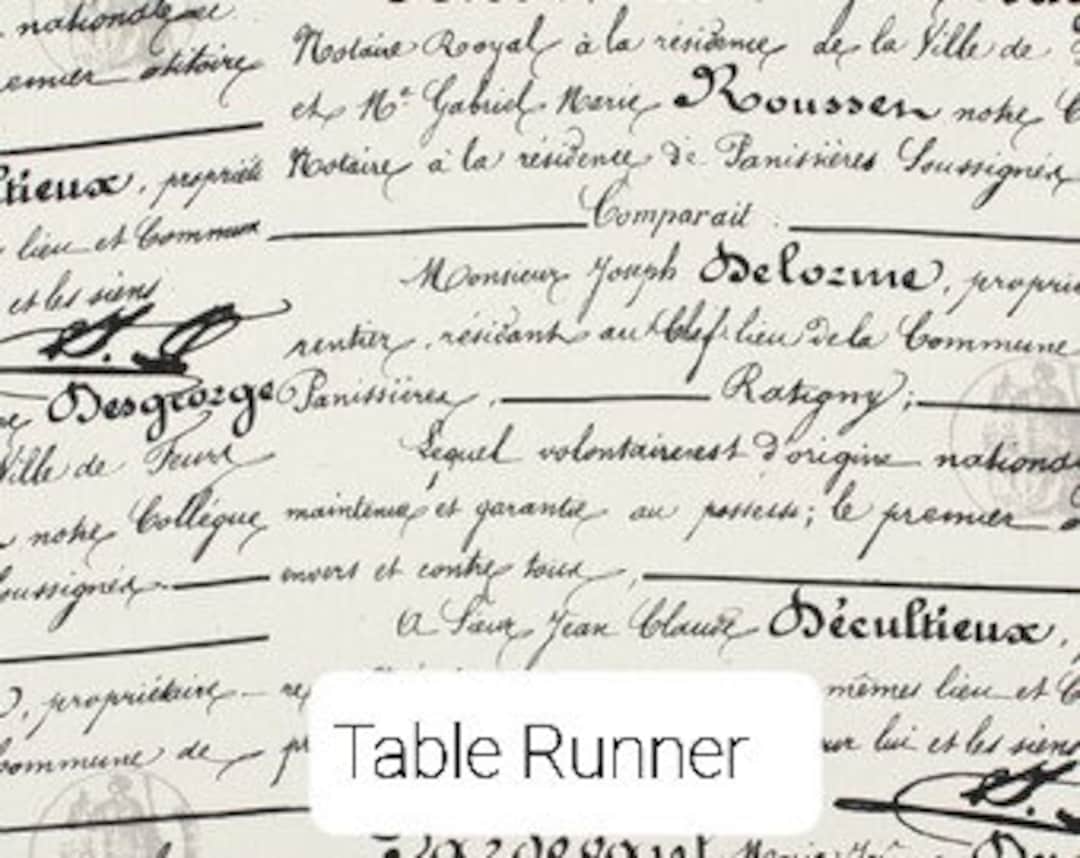 nationale
premier
tieux, propriét
lieu et Commun
et les siens
Desgeorge
Ville de Feurs
notre Collègue
Soussignés
propriétaire
Commune de
Notaire Royal à la résidence de la Ville de
et Me Gabriel Marie Roussen notre
Notaire à la résidence de Panissières Soussignés
Comparait
Monsieur Joseph Delorme, propri
rentier, résidant au Chef lieu de la Commune
Panissières, Ratigny;
Lequel volontairement d'origine national
maintenue et garantie au possess; le premier
envers et contre tous,
A Sieur Jean Claude Décultieux,
mêmes lieu et C
ur lui et les siens
Table Runner